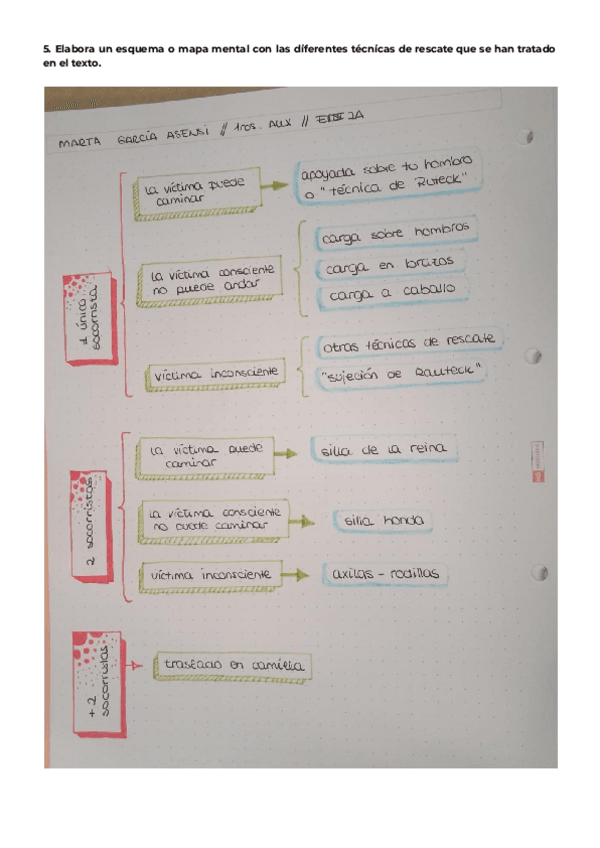 5. Elabora un esquema o mapa mental con las diferentes técnicas de rescate que se han tratado
en el texto.
MARTA GARCÍA ASENSI // 1ros. AUX //
1 único
socorrista
la víctima puede
caminar
apoyada sobre tu hombro
o "técnica de Ruteck"
la víctima consciente
no puede andar
carga sobre hombros
carga en brazos
carga a caballo
víctima inconsciente
otras técnicas de rescate
"sujeción de Rauteck"
2 socorristas
la víctima puede
caminar
silla de la reina
la víctima consciente
no puede caminar
silla honda
víctima inconsciente
axilas - rodillas
+ 2
socorristas
traslado en camilla